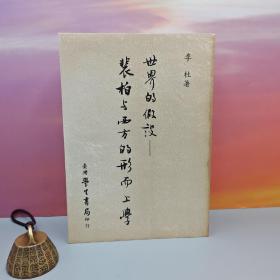 李杜著
世界的假設——
裴柏與西方的形而上學
臺灣學生書局印行